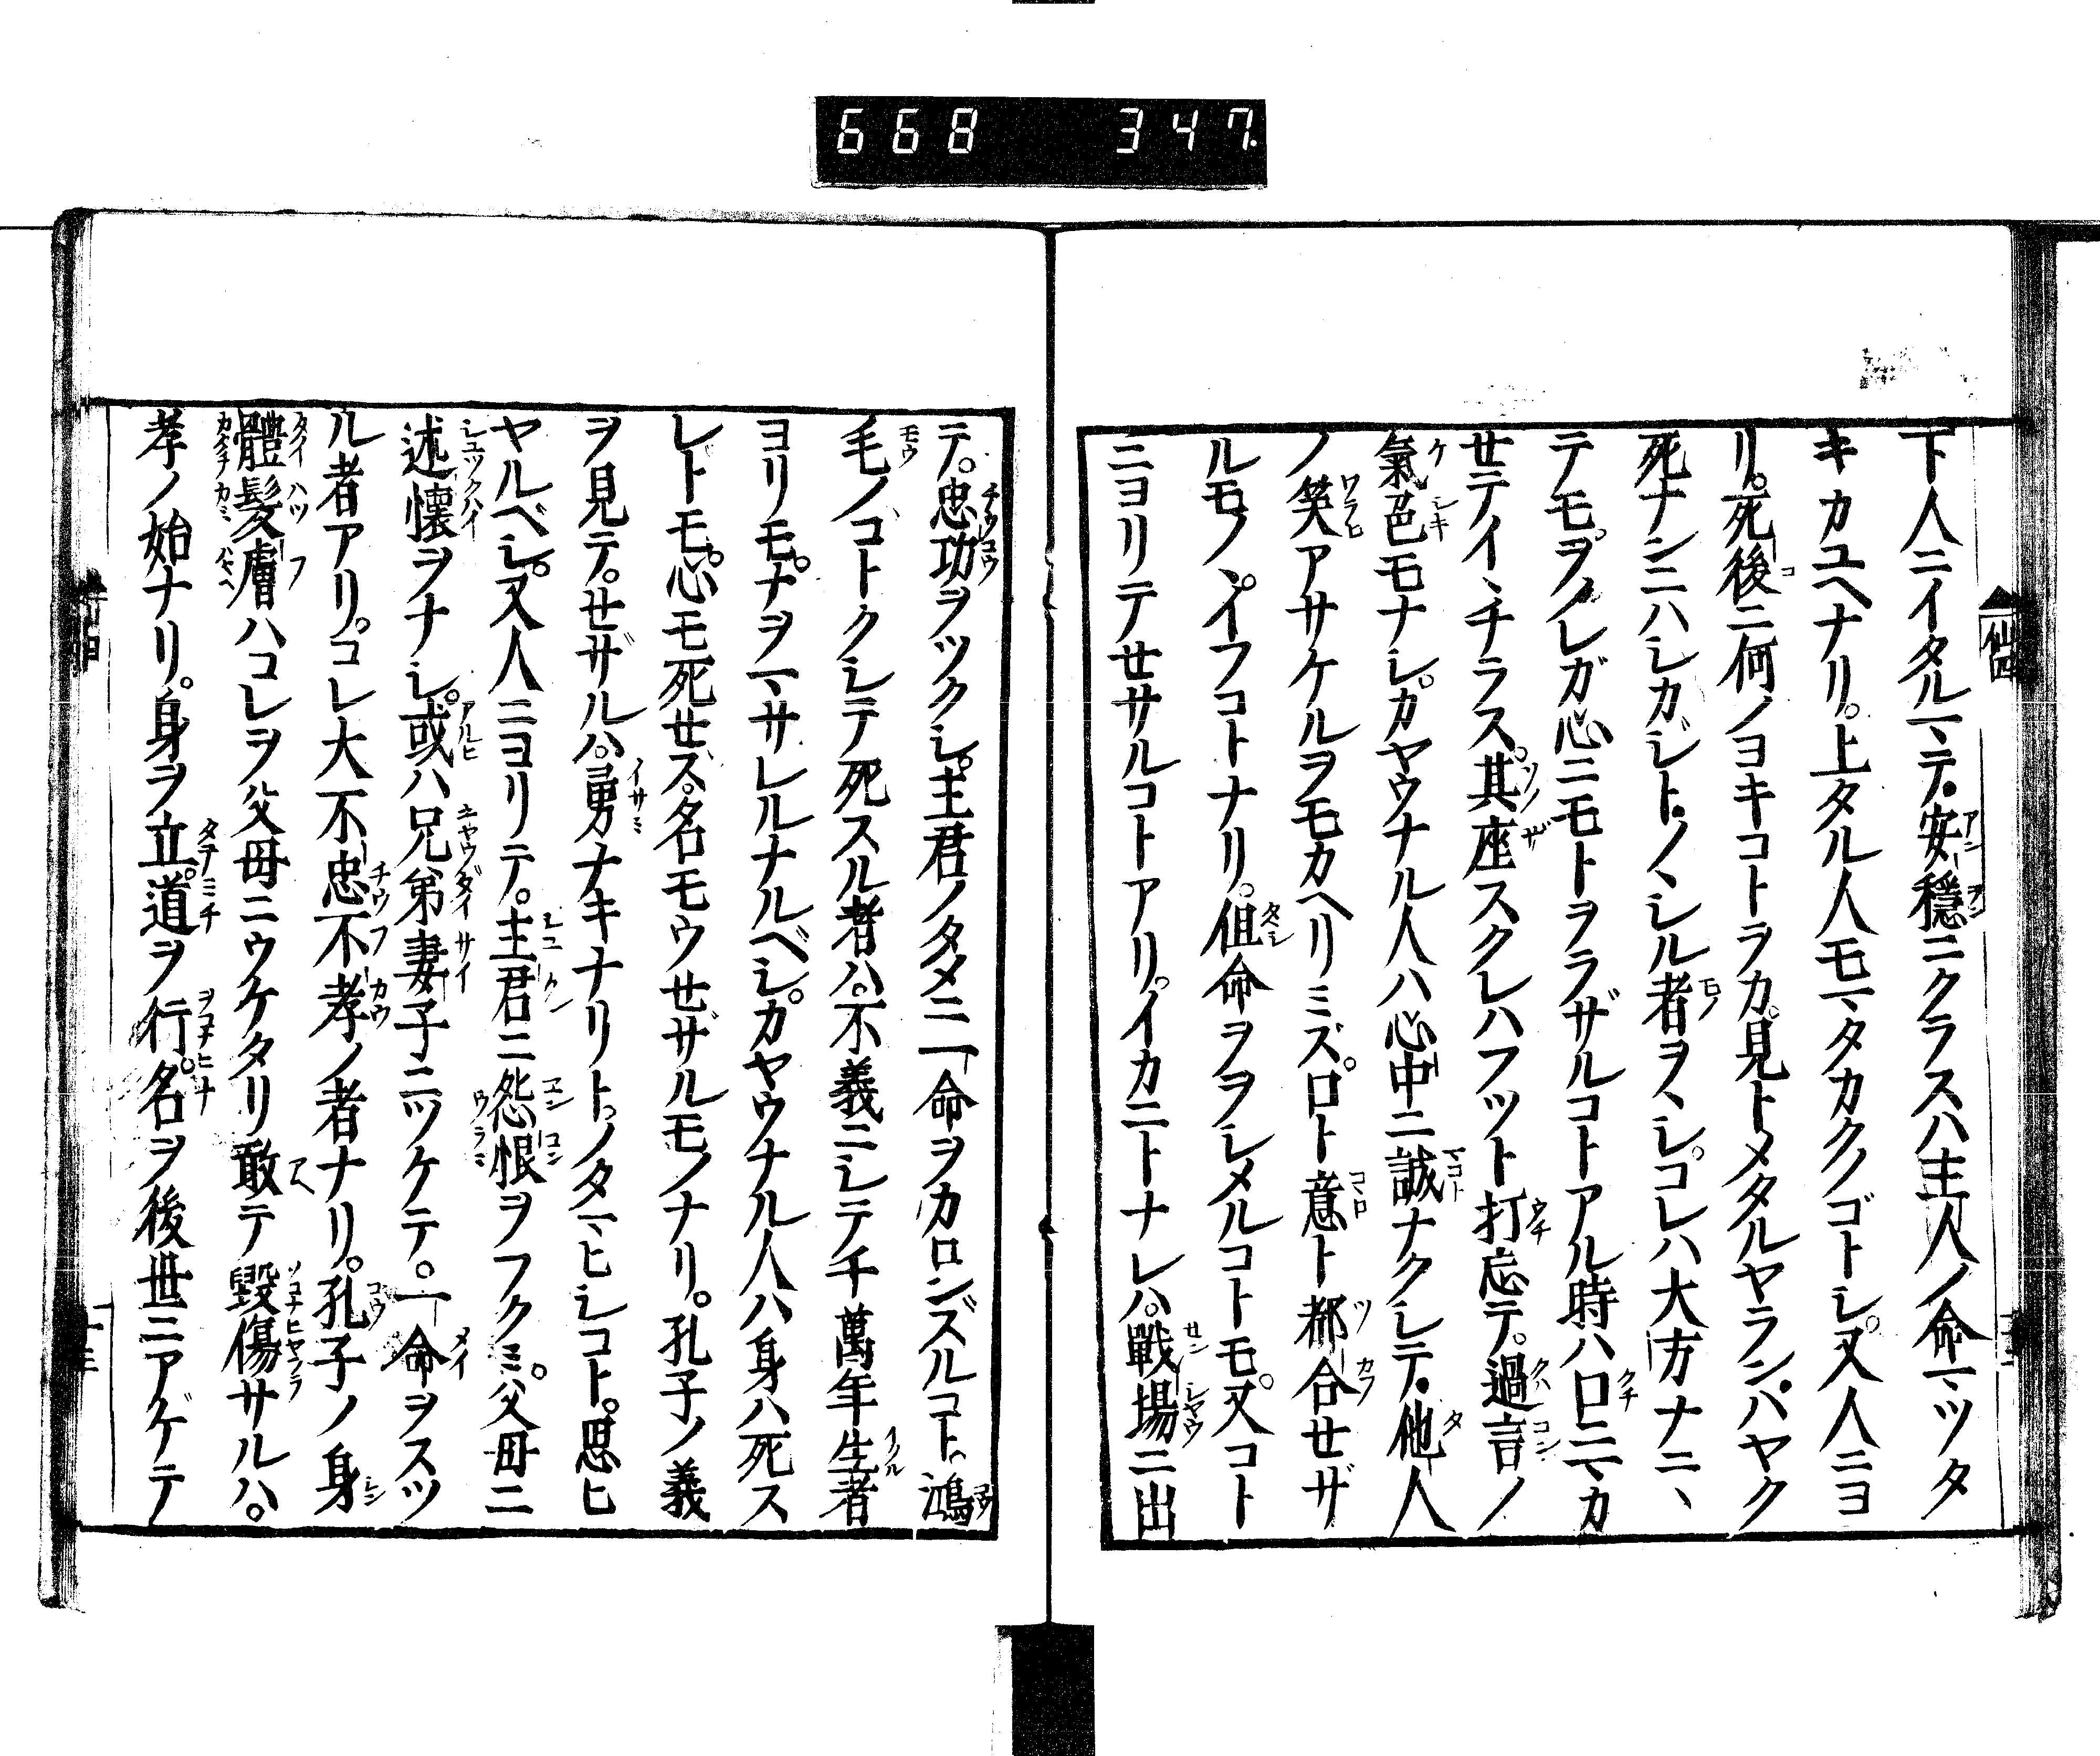 668 347
下人ニイタルマヽテ。安穏ニクラスハ主人ノ命マヽツタ
キカユヘナリ。上タル人モマタカクノゴトシ。又人ニヨ
リ。死後ニ何ノヨキコトラカ。見トメタルヤラン。ハヤク
死ナンニハシカジト。ノヽシル者ヲヽシ。コレハ大方ナニヽ
テモ。ヲノレガ心ニモトヲラザルコトアル時ハ口ニマヽカ
セテイヽチラス。其座スクレハフツト打忘テ。過言ノ
氣色モナシ。カヤウナル人ハ心中ニ誠ナクシテ。他人
ノ笑アサケルヲモカヘリミズ。口ト意ト都合セザ
ルモノヽ。イフコトナリ。但命ヲヲシメルコトモ。又コト
ニヨリテセサルコトアリ。イカニトナレハ。戰場ニ出
テ。忠功ヲツクシ。主君ノタメニ一命ヲカロンズルコト。鴻
毛ノコトクシテ死スル者ハ。不義ニシテ千萬年生者
ヨリモ。ナヲマヽサレルナルベシ。カヤウナル人ハ身ハ死ス
レトモ。心モ死セス。名モウセザルモノナリ。孔子ノ義
ヲ見テ。セザルハ。勇ナキナリト。ノタマヽヒシコト。思ヒ
ヤルベシ。又人ニヨリテ。主君ニ怨恨ヲフクミ。父母ニ
述懷ヲナシ。或ハ兄弟妻子ニツケテ。一命ヲスツ
ル者アリ。コレ大不忠不孝ノ者ナリ。孔子ノ身
體髮膚ハコレヲ父母ニウケタリ敢テ毀傷サルハ。
孝ノ始ナリ。身ヲ立。道ヲ行。名ヲ後世ニアゲテ